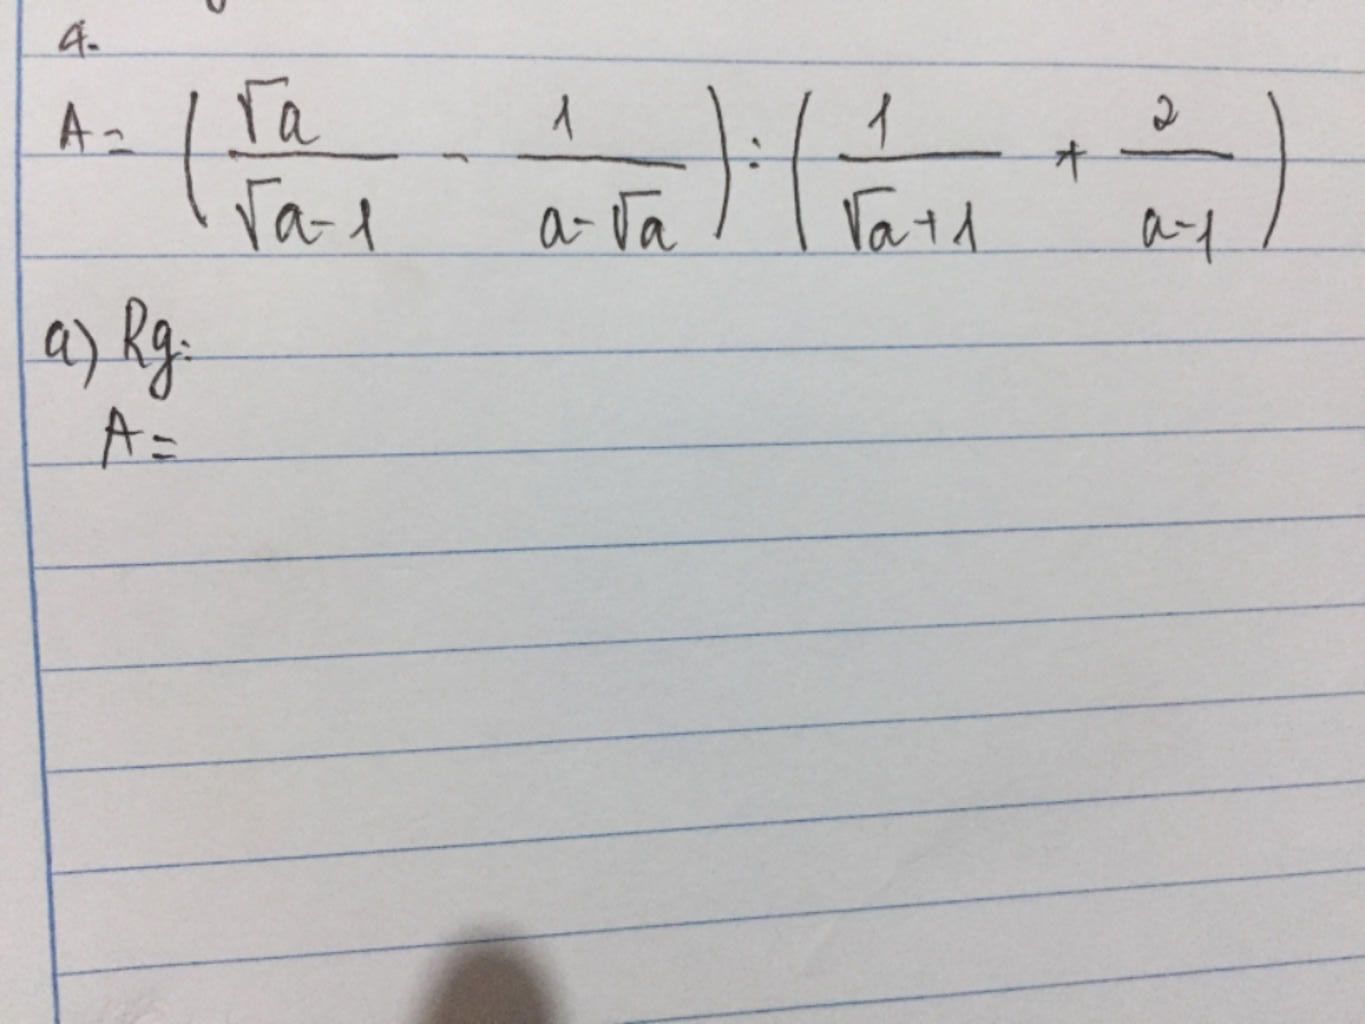 4.
A = ( √a / √a-1 - 1 / a-√a ) : ( 1 / √a+1 + 2 / a-1 )
a) Rg:
A =